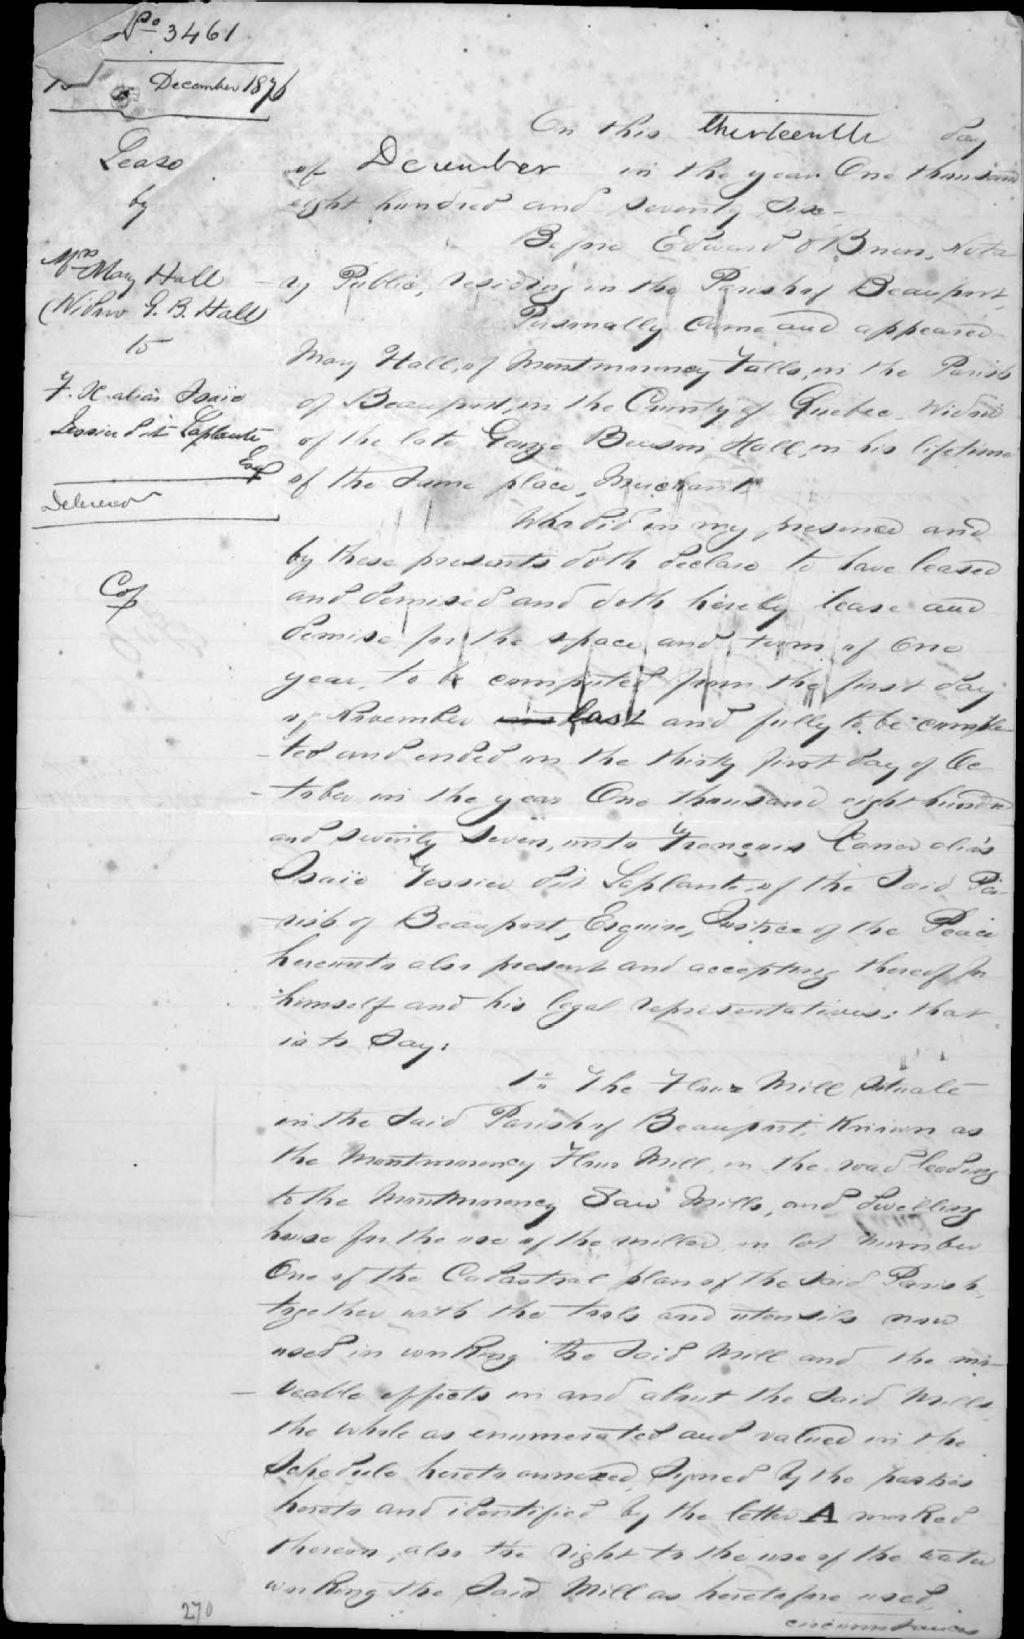 No 3461
December 1876
Lease
by
Mrs Mary Hall
(Widow G. B. Hall)
to
F. X. alias Isaïe
Tessier dit Laplante
Esq
Delivered
Cop
On this thirteenth day
of December in the year One thousand
eight hundred and seventy six
Before Edward O'Brien, Nota
ry Public, residing in the Parish of Beauport,
Personally came and appeared
Mary Hall, of Montmorency Falls, in the Parish
of Beauport, in the County of Quebec Widow
of the late George Benson Hall, in his lifetime
of the same place, Merchant
Who did in my presence and
by these presents doth declare to have leased
and demised and doth hereby lease and
demise for the space and term of One
year, to be computed from the first day
of November last and fully to be comple
ted and ended on the thirty first day of Oc
tober in the year One thousand eight hundred
and seventy seven, unto François Xavier alias
Isaïe Tessier dit Laplante, of the Said Pa
rish of Beauport, Esquire, Justice of the Peace
hereunto also present and accepting thereof for
himself and his legal representatives: that
is to Say:
1o The Flour Mill Situate
in the Said Parish of Beauport, Known as
the Montmorency Flour Mill, on the road leading
to the Montmorency Saw Mills, and dwelling
house for the use of the miller on lot number
One of the Cadastral plan of the Said Parish,
together with the tools and utensils now
used in working the Said Mill and the mo
veable effects in and about the Said Mills
the whole as enumerated and valued in the
Schedule hereto annexed, Signed by the parties
hereto and identified by the letter A marked
thereon, also the right to the use of the water
working the Said Mill as heretofore used,
circumstances
270